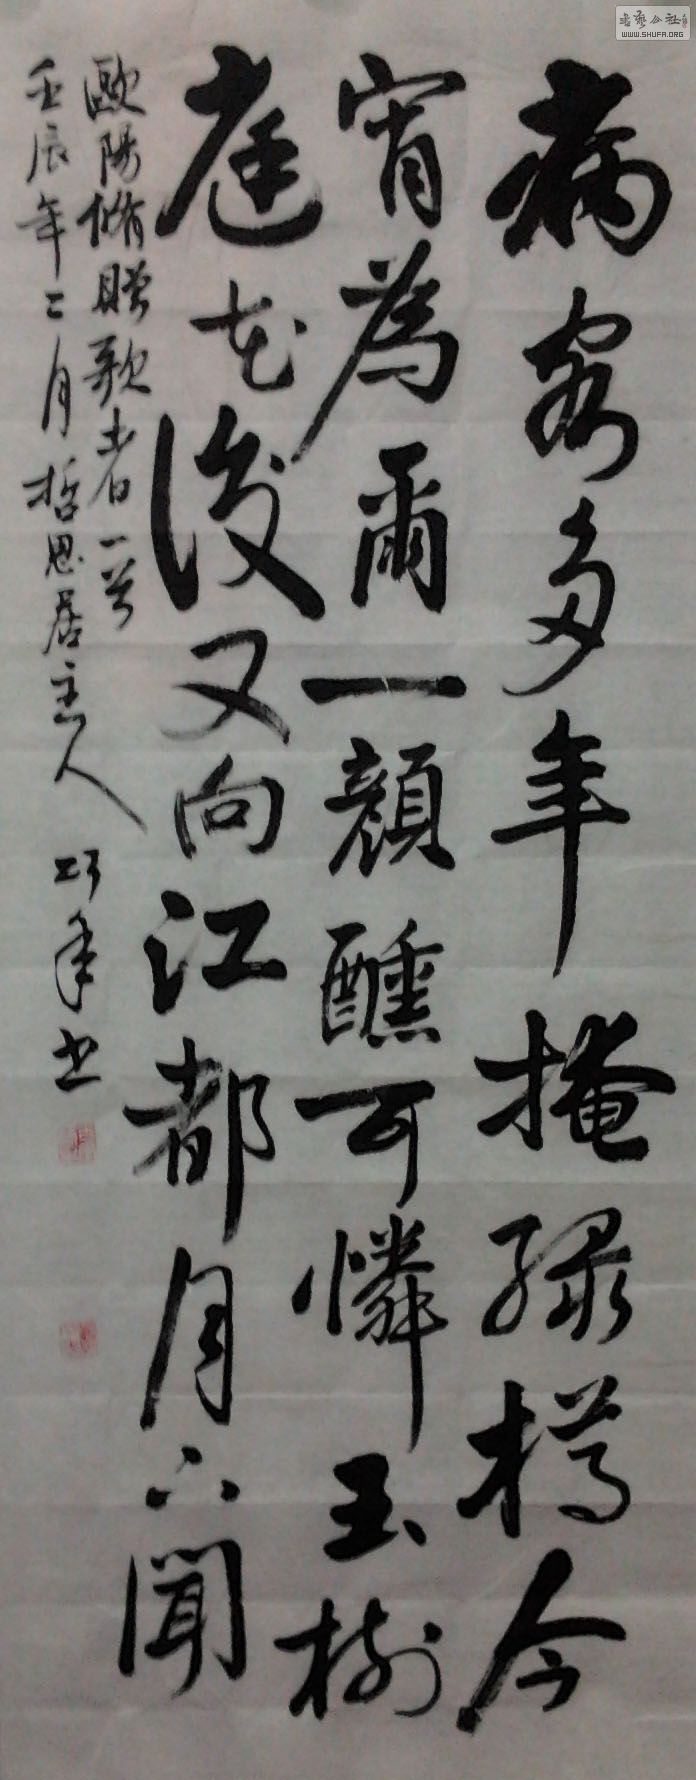 病客多年掩綠樽今
宵為爾一顏醺可憐玉樹
庭花後又向江都月下聞
歐陽脩贈歌者一首
壬辰年二月哲思居主人 巧年书
书艺公社
WWW.SHUFA.ORG